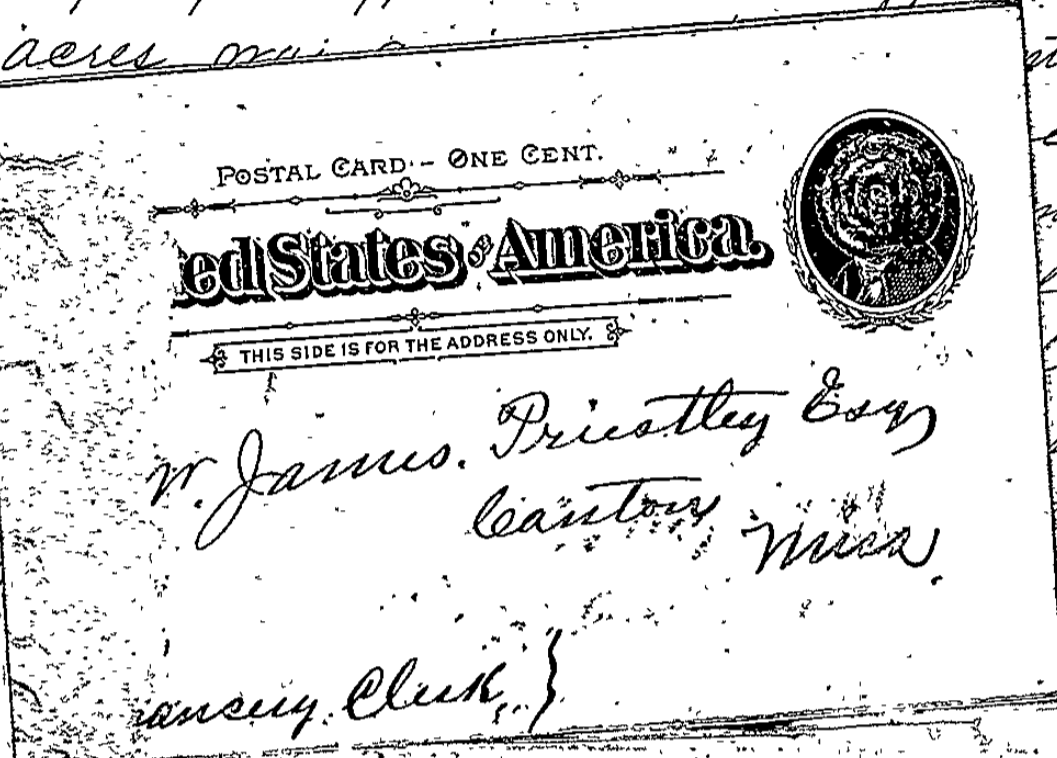 acres
POSTAL CARD - ONE CENT.
ted States of America.
THIS SIDE IS FOR THE ADDRESS ONLY.
W. James. Priestley Esq
Canton
Miss.
ancery Clerk, }